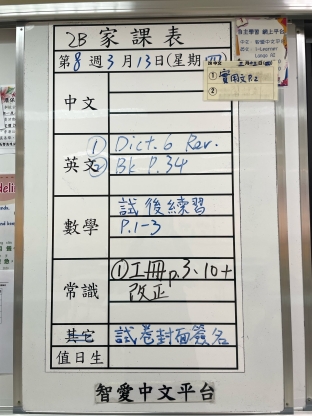 2B 家課表
第8週3月13日(星期四)
自主學習 網上平台
①實用文P.2
②
中文
英文
① Dict. 6 Rev.
② Bk P.34
數學
試後練習
P.1-3
常識
①工冊p.3、10+
改正
其它
試卷封面簽名
值日生
智愛中文平台